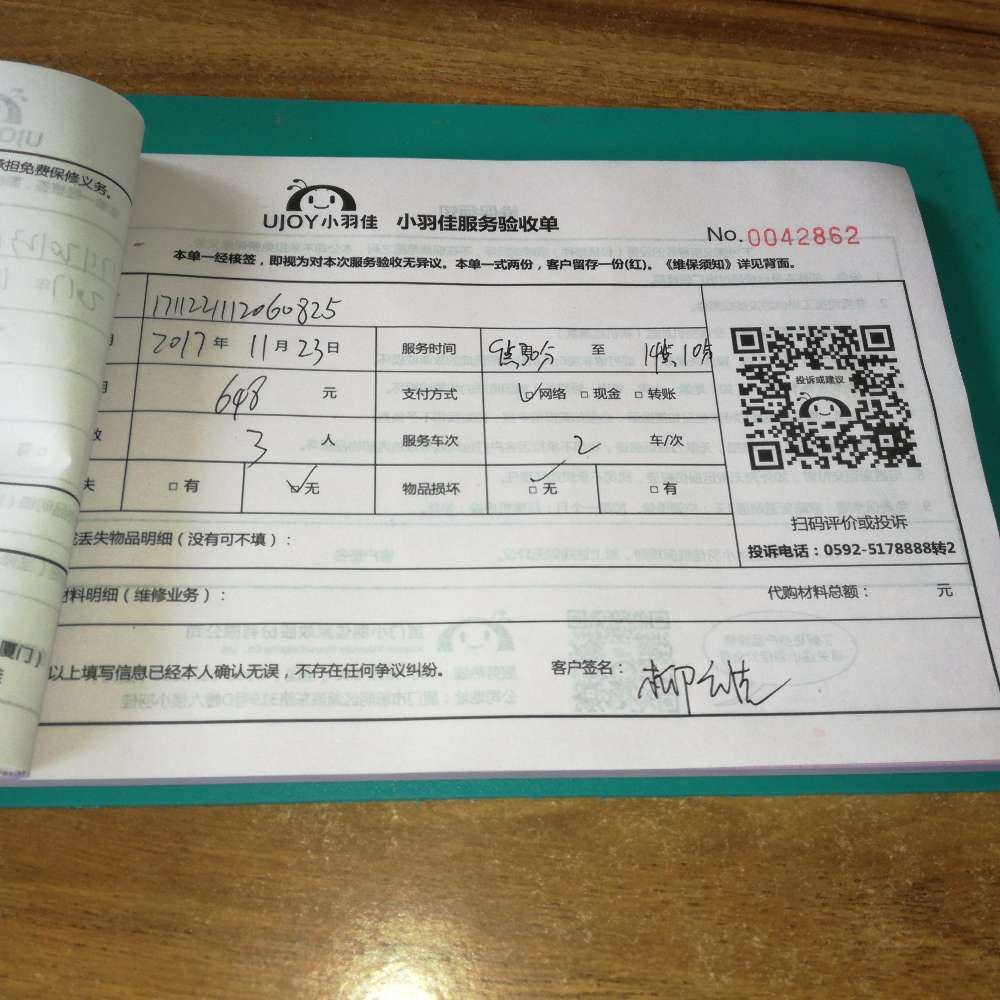 承担免费保修义务。
UJOY小羽佳 小羽佳服务验收单
No.0042862
本单一经核签，即视为对本次服务验收无异议。本单一式两份，客户留存一份(红)。《维保须知》详见背面。
171122111206 0825
2017 年 11 月 23 日 服务时间 9点30分 至 14点10分
648 元 支付方式 ☑网络 □现金 □转账
3 人 服务车次 2 车/次
失 □有 ☑无 物品损坏 ☑无 □有
投诉或建议
扫码评价或投诉
投诉电话：0592-5178888转2
丢失物品明细（没有可不填）：
材料明细（维修业务）： 代购材料总额： 元
以上填写信息已经本人确认无误，不存在任何争议纠纷。 客户签名：